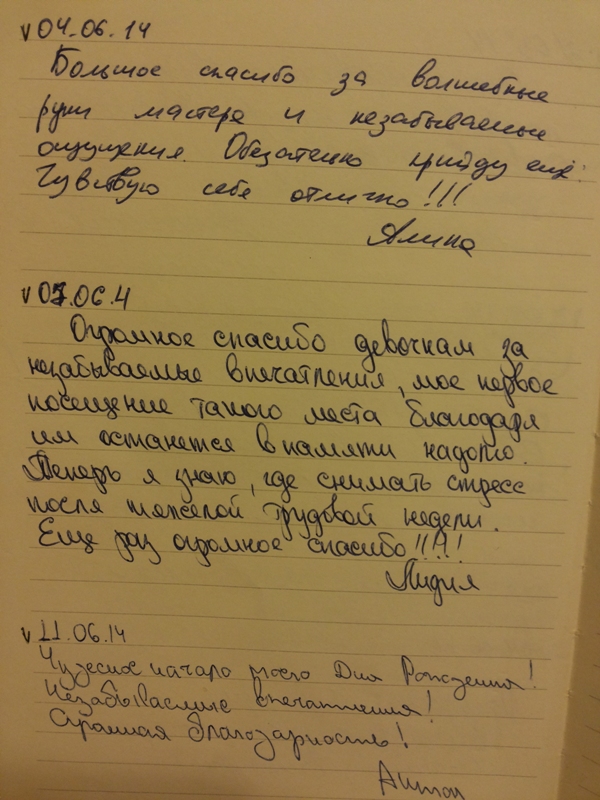 v 04.06.14
Большое спасибо за волшебные
руки мастера и незабываемые
ощущения. Обязательно прийду ещё.
Чувствую себя отлично!!!
Алина
v 07.06.4
Огромное спасибо девочкам за
незабываемые впечатления, мое первое
посещение такого места благодаря
им останется в памяти надолго.
Теперь я знаю, где снимать стресс
после тяжелой трудовой недели.
Еще раз огромное спасибо!!!!!
Лидия
v 11.06.14
Чудесное начало моего Дня Рождения!
Незабываемые впечатления!
Огромная благодарность!
Антон